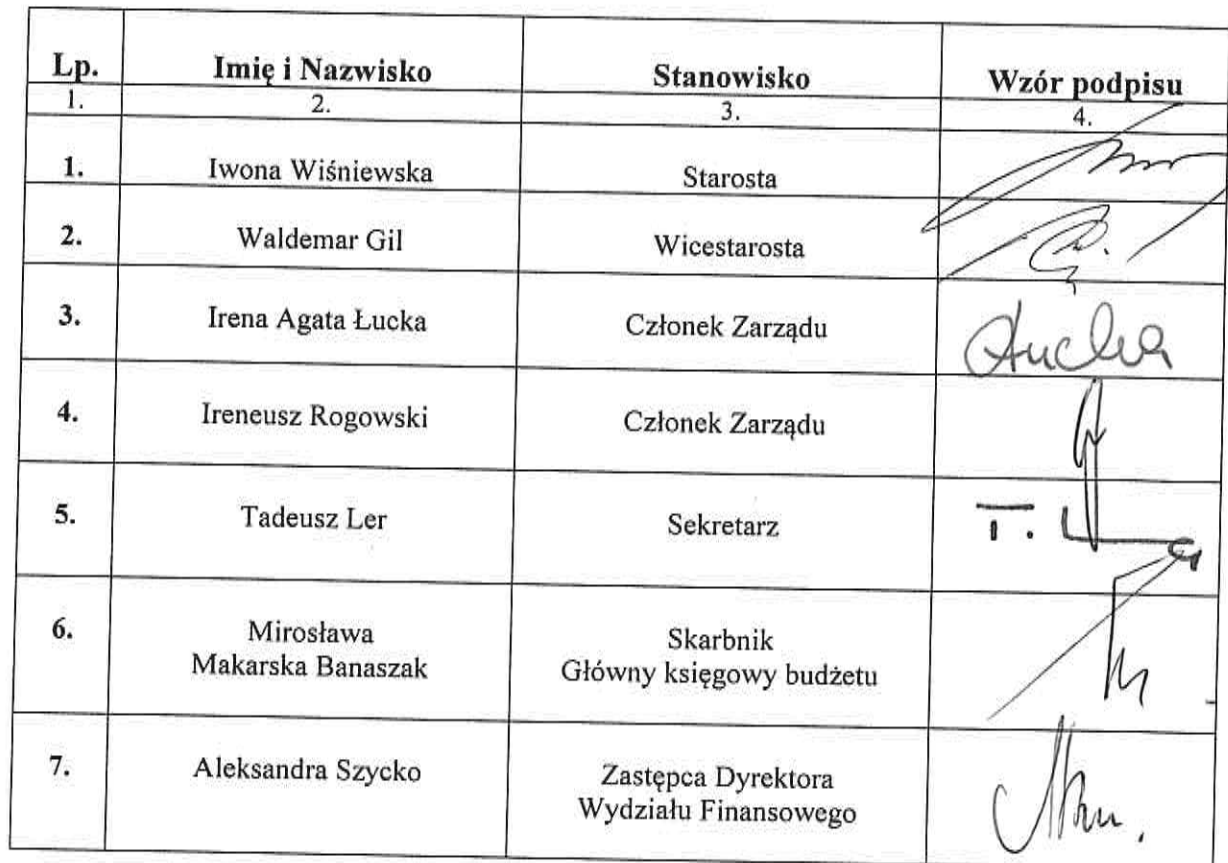 Lp. Imię i Nazwisko Stanowisko Wzór podpisu
1. 2. 3. 4.
1. Iwona Wiśniewska Starosta
2. Waldemar Gil Wicestarosta
3. Irena Agata Łucka Członek Zarządu
4. Ireneusz Rogowski Członek Zarządu
5. Tadeusz Ler Sekretarz
6. Mirosława Skarbnik
Makarska Banaszak Główny księgowy budżetu
7. Aleksandra Szycko Zastępca Dyrektora
Wydziału Finansowego